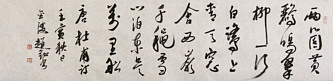 兩箇黃
鸝鳴翠
柳一行
白鷺上
青天窓
含西嶺
千秋雪
門泊東吳
萬里船
唐杜甫詩
壬寅秋日